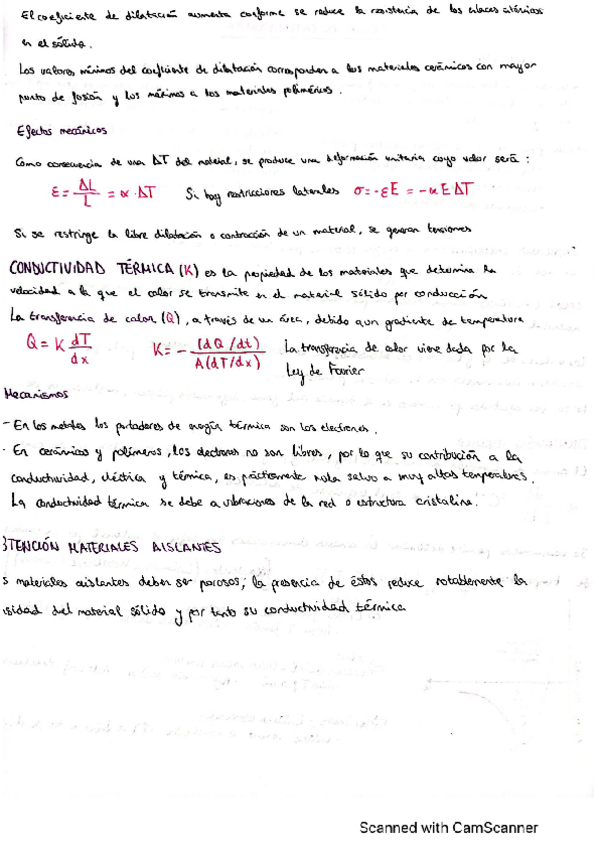 El coeficiente de dilatación aumenta conforme se reduce la resistencia de los enlaces atómicos
en el sólido.
Los valores mínimos del coeficiente de dilatación corresponden a los materiales cerámicos con mayor
punto de fusión y los máximos a los materiales poliméricos.
Efectos mecánicos
Como consecuencia de una ΔT del material, se produce una deformación unitaria cuyo valor será:
ε = ΔL/L = α·ΔT Si hay restricciones laterales σ = -εE = -αEΔT
Si se restringe la libre dilatación o contracción de un material, se generan tensiones
CONDUCTIVIDAD TÉRMICA (K) es la propiedad de los materiales que determina la
velocidad a la que el calor se transmite en el material sólido por conducción
La transferencia de calor (Q), a través de un área, debido a un gradiente de temperatura
Q = K dT/dx K = - (dQ/dt)/A(dT/dx) La transferencia de calor viene dada por la
Ley de Fourier
Mecanismos
- En los metales los portadores de energía térmica son los electrones.
- En cerámicos y polímeros, los electrones no son libres, por lo que su contribución a la
conductividad, eléctrica y térmica, es prácticamente nula salvo a muy altas temperaturas.
La conductividad térmica se debe a vibraciones de la red o estructura cristalina.
TENCIÓN MATERIALES AISLANTES
s materiales aislantes deben ser porosos; la presencia de éstos reduce notablemente la
sidad del material sólido y por tanto su conductividad térmica
Scanned with CamScanner